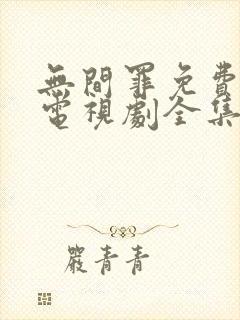 無間罪免費
電視劇全集
嚴青青